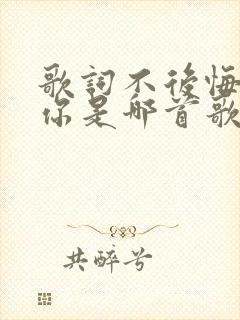 歌詞不後悔
你是哪首歌
共醉兮